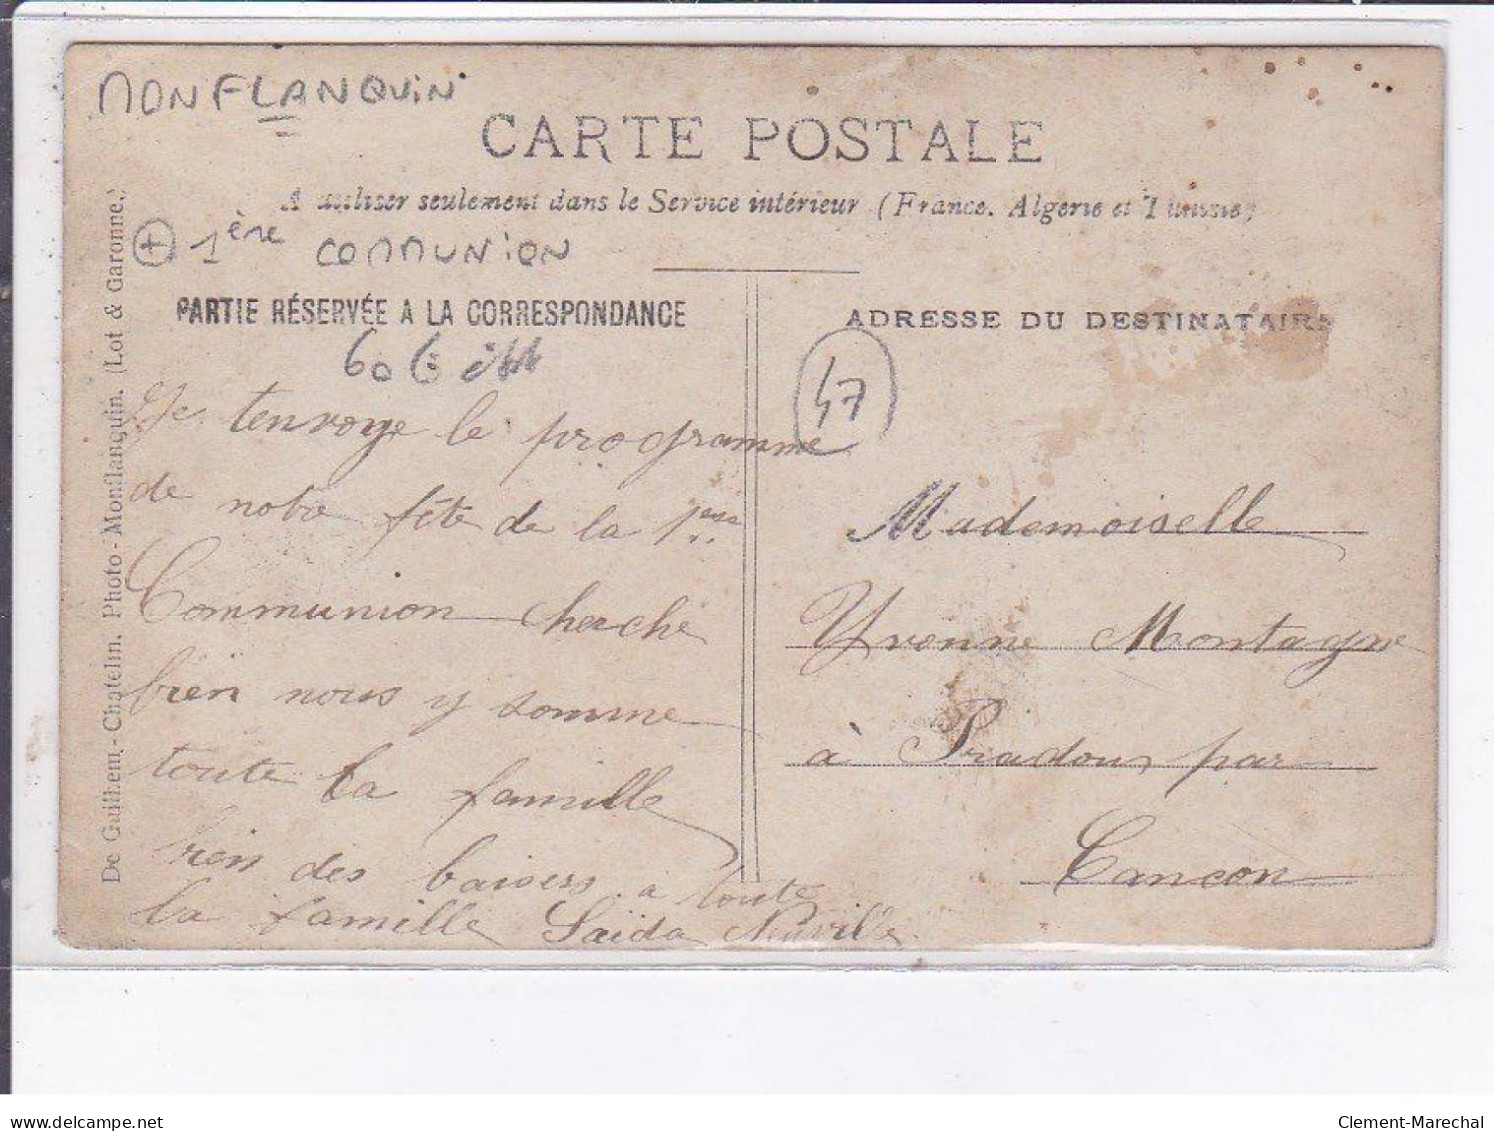 MONFLANQUIN
CARTE POSTALE
A utiliser seulement dans le Service intérieur (France, Algerie et Tunisie)
+ 1ère COMMUNION
PARTIE RÉSERVÉE A LA CORRESPONDANCE
ADRESSE DU DESTINATAIRE
60
47
Je tenvoye le programme
de notre fête de la 1ere
Communion cherche
bien nous y somme
toute la famille
rien des baisers a toute
la famille Saïda
Mademoiselle
Yvonne Montagne
à Pradous par
Cancon
De Guilhem-Chatelin. Photo - Monflanquin. (Lot & Garonne.)
www.delcampe.net
Clement-Marechal